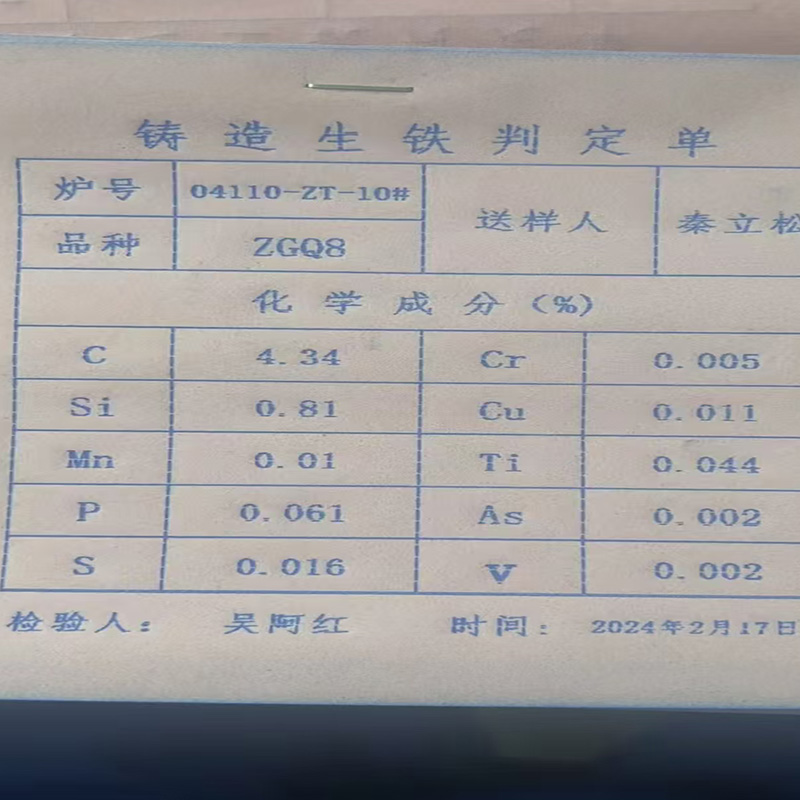 铸造生铁判定单
炉号 04110-ZT-10# 送样人 秦立松
品种 ZGQ8
化学成分(%)
C 4.34 Cr 0.005
Si 0.81 Cu 0.011
Mn 0.01 Ti 0.044
P 0.061 As 0.002
S 0.016 V 0.002
检验人: 吴阿红 时间: 2024年2月17日